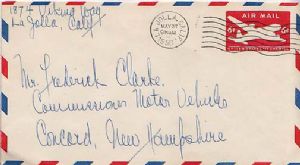 1874 Viking Way
La Jolla, Calif
LA JOLLA, CALIF.
MAY
AIR MAIL
6¢ 6¢
Mr. Frederick Clarke,
Commissioner Motor Vehicles
Concord, New Hampshire